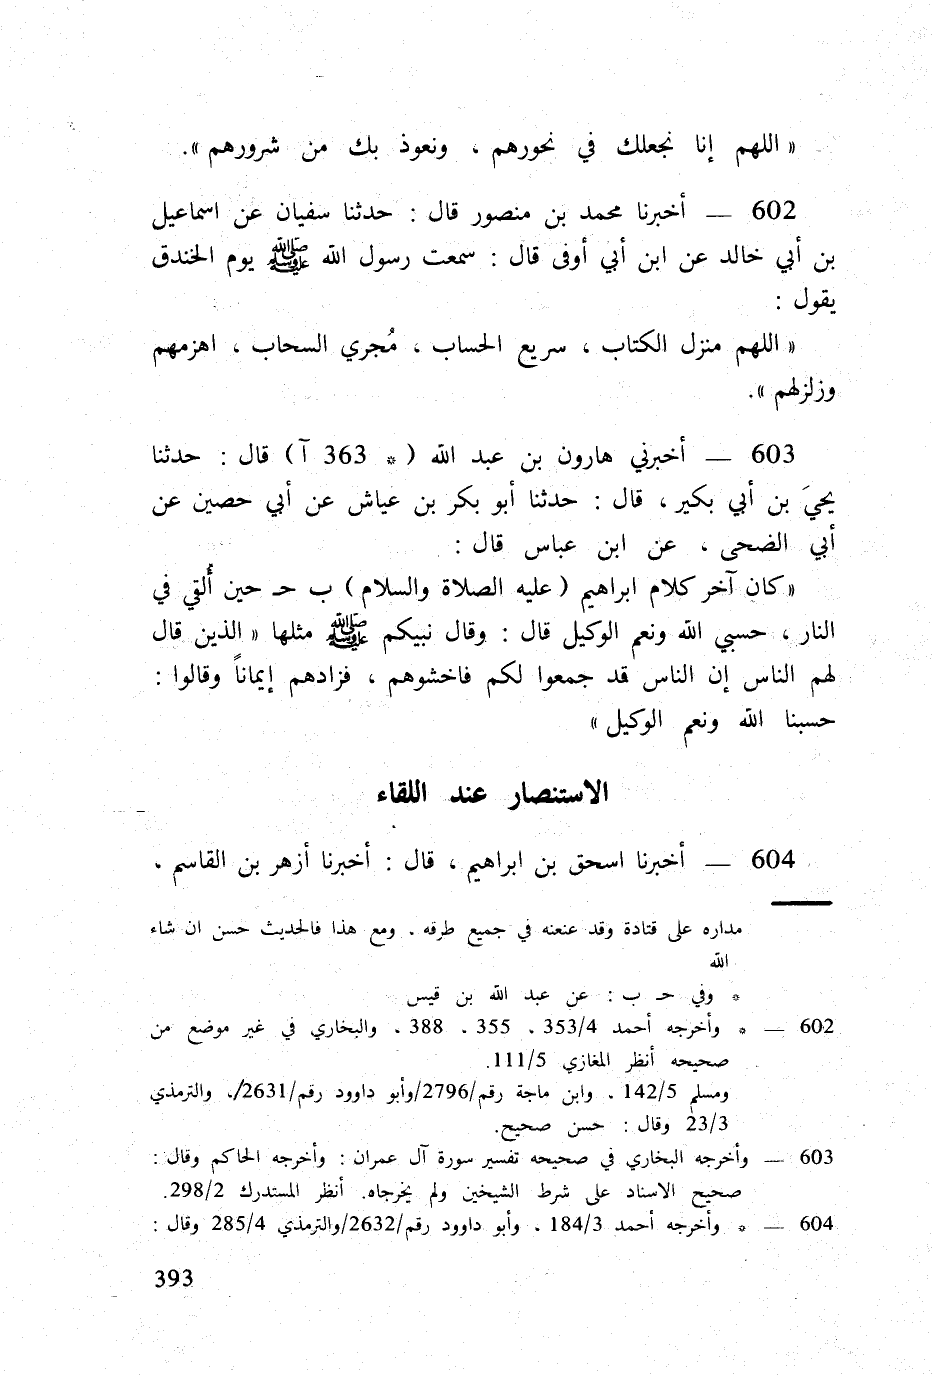 « اللهم إنا نجعلك في نحورهم ، ونعوذ بك من شرورهم ».
602 — أخبرنا محمد بن منصور قال : حدثنا سفيان عن اسماعيل
بن أبي خالد عن ابن أبي أوفى قال : سمعت رسول الله ﷺ يوم الخندق
يقول :
« اللهم منزل الكتاب ، سريع الحساب ، مُجري السحاب ، اهزمهم
وزلزلهم ».
603 — أخبرني هارون بن عبد الله ( * 363 آ ) قال : حدثنا
يحيَ بن أبي بكير ، قال : حدثنا أبو بكر بن عياش عن أبي حصين عن
أبي الضحى ، عن ابن عباس قال :
« كان آخر كلام ابراهيم ( عليه الصلاة والسلام ) ب حـ حين أُلقي في
النار ، حسبي الله ونعم الوكيل قال : وقال نبيكم ﷺ مثلها « الذين قال
لهم الناس إن الناس قد جمعوا لكم فاخشوهم ، فزادهم إيماناً وقالوا :
حسبنا الله ونعم الوكيل »
الاستنصار عند اللقاء
604 — أخبرنا اسحق بن ابراهيم ، قال : أخبرنا أزهر بن القاسم ،
مداره على قتادة وقد عنعنه في جميع طرقه . ومع هذا فالحديث حسن ان شاء
الله
* وفي حـ ب : عن عبد الله بن قيس
602 — * وأخرجه أحمد 353/4 ، 355 ، 388 ، والبخاري في غير موضع من
صحيحه أنظر المغازي 111/5.
ومسلم 142/5 ، وابن ماجة رقم/2796/وأبو داوود رقم/2631/، والترمذي
23/3 وقال : حسن صحيح.
603 — وأخرجه البخاري في صحيحه تفسير سورة آل عمران : وأخرجه الحاكم وقال :
صحيح الاسناد على شرط الشيخين ولم يخرجاه. أنظر المستدرك 298/2.
604 — * وأخرجه أحمد 184/3 ، وأبو داوود رقم/2632/والترمذي 285/4 وقال :
393